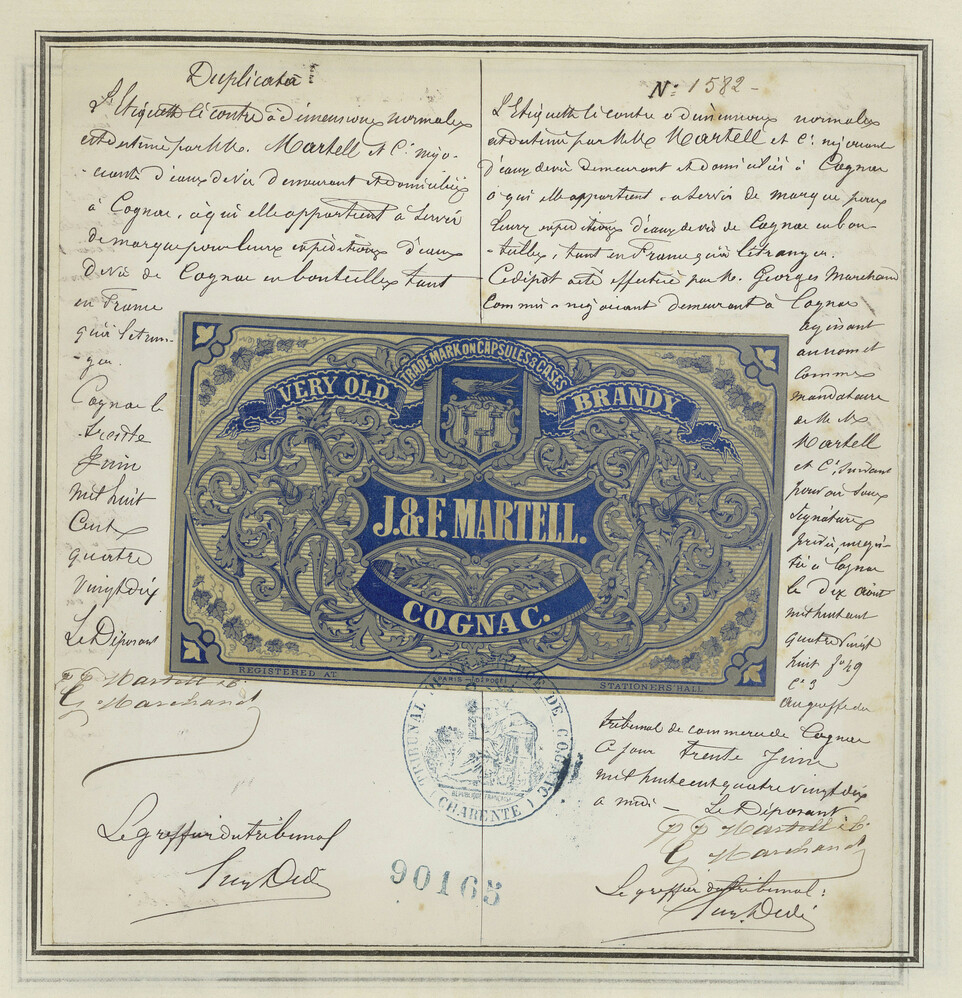 Duplicata
L'Etiquette ci contre a dimensions normales
est destiné par M.M. Martell et Cie négo-
-ciants d'eaux de vie demeurant et domiciliés
à Cognac, à qui elle appartient à servir
de marque pour leurs expéditions d'eaux
de vie de Cognac en bouteilles tant
en France
qu'à l'etran-
-ger.
Cognac le
trente
Juin
mil huit
Cent
quatre
vingt dix
Le Déposant
pp Martell & Co
G Marchand
Le greffier du tribunal
N: 1582 -
L'Etiquette ci contre a dimensions normales
est destiné par M.M. Martell et Cie négociants
d'eaux de vie demeurant et domiciliés à Cognac
à qui elle appartient a servir de marque pour
leurs expéditions d'eaux de vie de Cognac en bou-
-teilles, tant en France qu'à l'étranger.
Ce dépôt a été effectué par M. Georges Marchand
Commis-négociant demeurant à Cognac
agissant
au nom et
comme
mandataire
de M.M.
Martell
et Cie, suivant
pouvoir sous
signatures
privées, enregis-
-tré à Cognac
le dix Août
mil huit cent
quatre vingt
huit fo 49
Ce 3
au greffe du
tribunal de commerce de Cognac
ce jour trente Juin
mil huit cent quatre vingt dix
a midi - Le Déposant
pp Martell & Co
G Marchand
Le greffier du tribunal:
TRADE MARK ON CAPSULES & CASES
VERY OLD BRANDY
J. & F. MARTELL.
COGNAC.
REGISTERED AT STATIONERS' HALL
PARIS - DÉPOSÉ
TRIBUNAL DE COMMERCE DE COGNAC
RÉPUBLIQUE FRANÇAISE
(CHARENTE)
90165